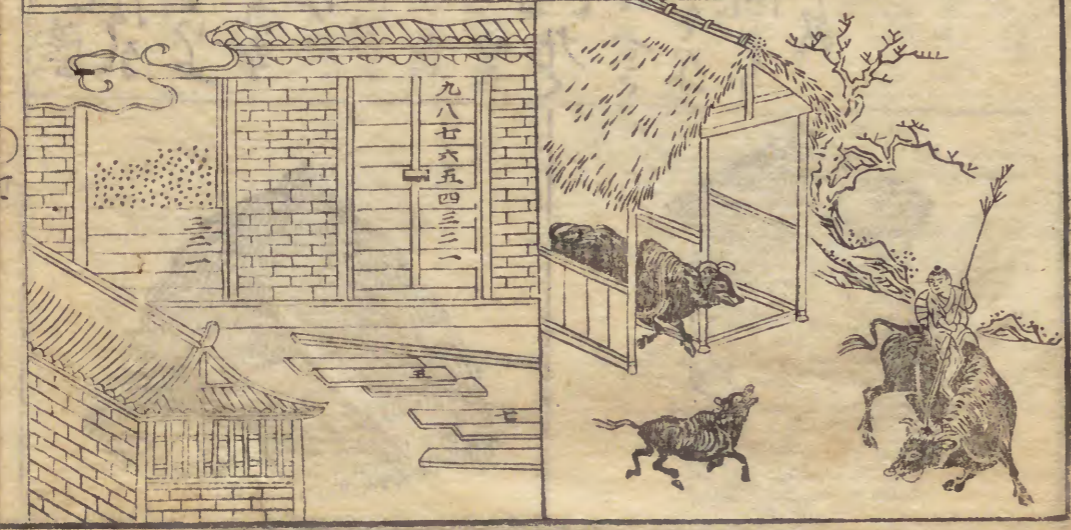 九
八
七
六
五
四
三
二
一
三
二
一
五
七